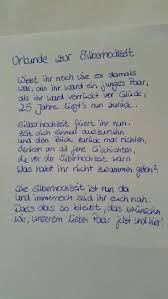 Urkunde zur Silberhochzeit
Wisst ihr noch wie es damals
war, als ihr ward ein junges Paar,
als ihr ward verrückt vor Glück,
25 Jahre liegt's nun zurück.
Silberhochzeit feiert ihr nun,
Zeit sich einmal auszuruhn
und den Blick zurück mal richten,
denken an all jene Gschichten,
die vor der Silberhochzeit warn
Was habt ihr nicht zusammen getan?
Die Silberhochzeit ist nun da
und immernoch seid ihr euch nah.
Dass das so bleibt, das wünschen
wir, unserem lieben Paar jetzt und hier!